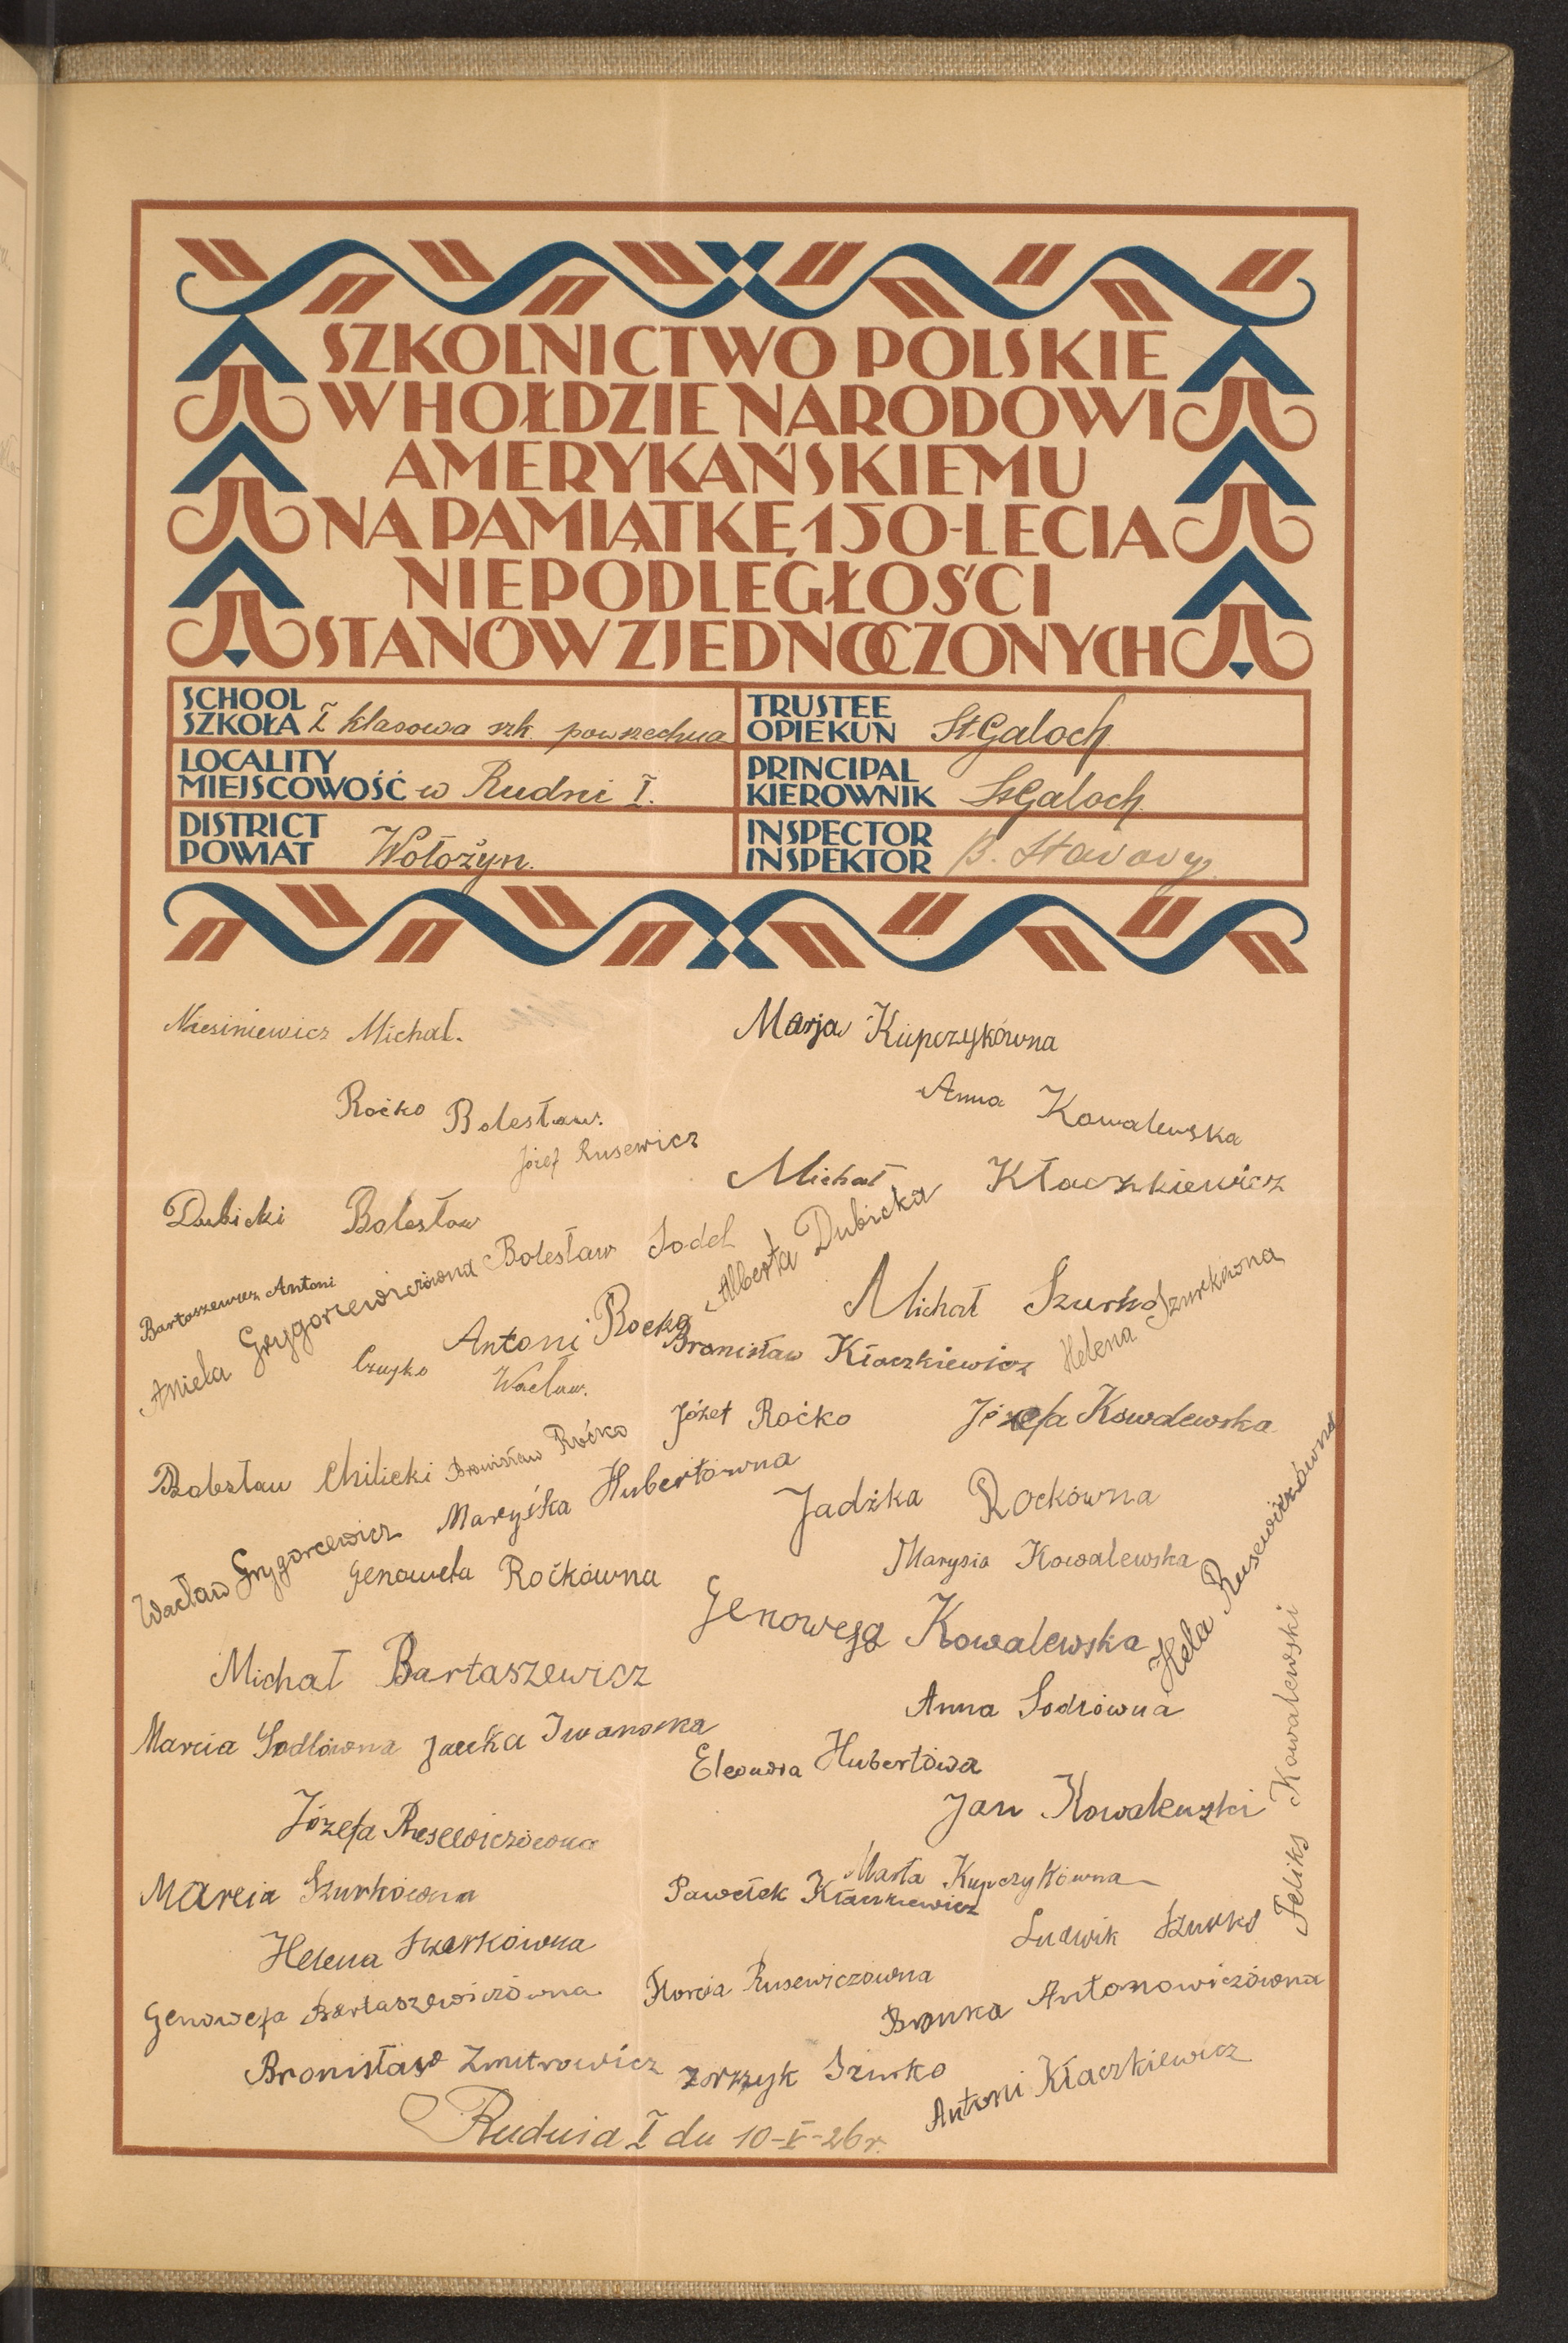 SZKOLNICTWO POLSKIE
W HOŁDZIE NARODOWI
AMERYKAŃSKIEMU
NA PAMIĄTKĘ 150-LECIA
NIEPODLEGŁOŚCI
STANÓW ZJEDNOCZONYCH
SCHOOL
SZKOŁA I klasowa szk. powszechna
TRUSTEE
OPIEKUN St Galoch
LOCALITY
MIEJSCOWOŚĆ w Rudni I.
PRINCIPAL
KIEROWNIK St Galoch
DISTRICT
POWIAT Wołożyn.
INSPECTOR
INSPEKTOR B.
Niesiniewicz Michał.
Marja Kupczykówna
Roćko Bolesław.
Anna Kowalewska
Józef Rusewicz
Michał Kłaczkiewicz
Dubicki Bolesław
Bolesław Sodel
Alberta Dubicka
Bartaszewicz Antoni
Aniela Grygorcewiczówna
Michał Szurko
Helena Szurkówna
Antoni Rocko
Bronisław Kłaczkiewicz
Wacław.
Józef Roćko
Józefa Kowalewska
Bolesław Chilicki
Bronisław Roćko
Wacław Grygorcewicz
Maryśka Hubertówna
Jadźka Rockówna
Genowefa Roćkówna
Marysia Kowalewska
Genowefa Kowalewska
Hela Rusewiczówna
Michał Bartaszewicz
Anna Sodlówna
Marcia Sodlówna
Janka Iwanowna
Eleonora Hubertówa
Jan Kowalewski
Józefa Rusewiczówna
Feliks Kowalewski
Marcia Szurkówna
Marta Kupczykówna
Pawełek Kłaczkiewicz
Ludwik Szurko
Helena Szurkówna
Genowefa Bartaszewiczówna
Florcia Rusewiczówna
Bronka Antonowiczówna
Bronisław Zmitrowicz
Szurko
Antoni Kłaczkiewicz
Rudnia I dn 10-V-26 r.